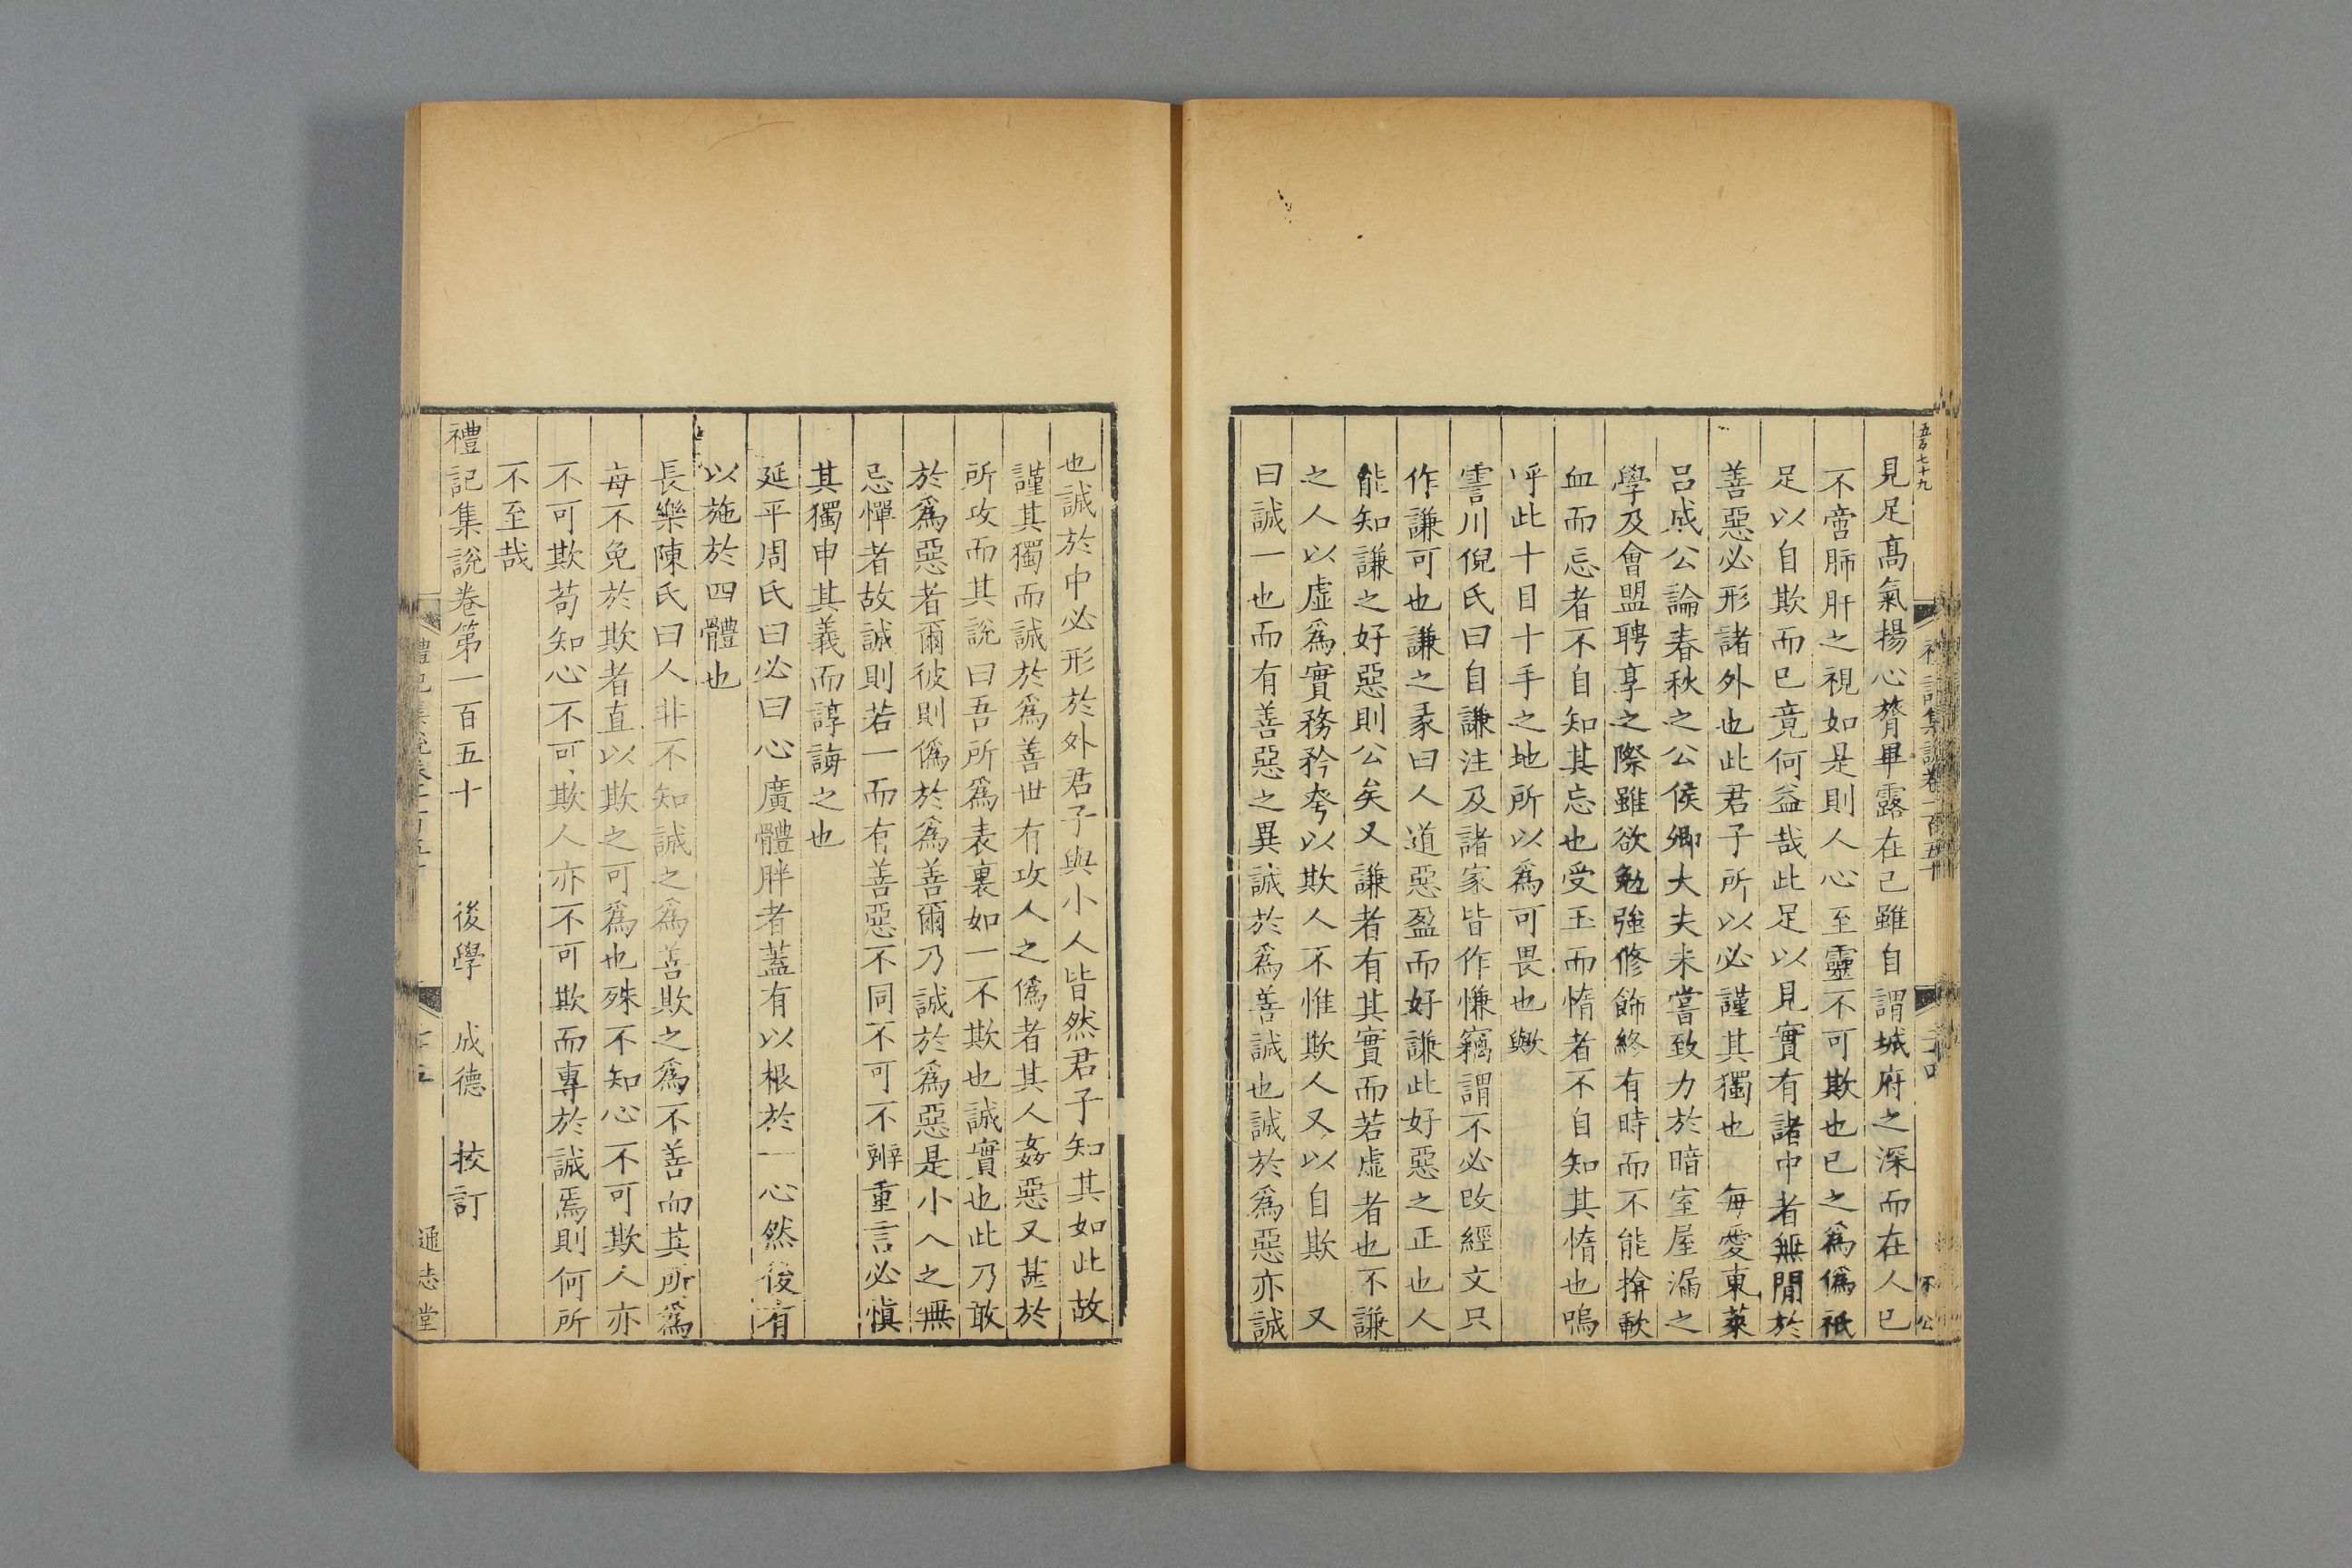 五百七十九
禮記集說卷一百五十
不公
見足高氣揚心膂畢露在己雖自謂城府之深而在人已
不啻肺肝之視如是則人心至靈不可欺也已之爲僞祇
足以自欺而已竟何益哉此足以見實有諸中者無閒於
善惡必形諸外也此君子所以必謹其獨也 每愛東萊
吕成公論春秋之公侯卿大夫未嘗致力於暗室屋漏之
學及會盟聘享之際雖欲勉強修飾終有時而不能揜歃
血而忘者不自知其忘也受玉而惰者不自知其惰也嗚
呼此十目十手之地所以爲可畏也歟
霅川倪氏曰自謙注及諸家皆作慊竊謂不必改經文只
作謙可也謙之彖曰人道惡盈而好謙此好惡之正也人
能知謙之好惡則公矣又謙者有其實而若虛者也不謙
之人以虛爲實務矜夸以欺人不惟欺人又以自欺 又
曰誠一也而有善惡之異誠於爲善誠也誠於爲惡亦誠
也誠於中必形於外君子與小人皆然君子知其如此故
謹其獨而誠於爲善世有攻人之僞者其人姦惡又甚於
所攻而其說曰吾所爲表裏如一不欺也誠實也此乃敢
於爲惡者爾彼則僞於爲善爾乃誠於爲惡是小人之無
忌憚者故誠則若一而有善惡不同不可不辨重言必慎
其獨申其義而諄誨之也
延平周氏曰必曰心廣體胖者蓋有以根於一心然後有
以施於四體也
長樂陳氏曰人非不知誠之爲善欺之爲不善而其所爲
每不免於欺者直以欺之可爲也殊不知心不可欺人亦
不可欺苟知心不可欺人亦不可欺而專於誠焉則何所
不至哉
禮記集說卷第一百五十 後學 成德 挍訂
禮記集說卷一百五十
通志堂